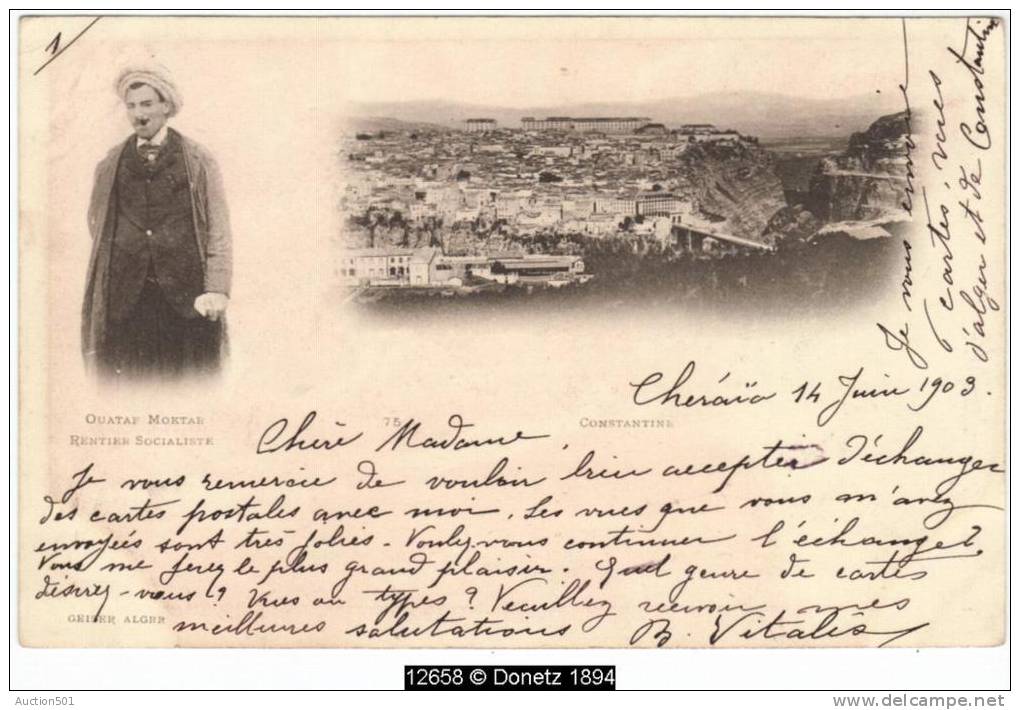 1
Je vous envoie
cartes, vues
d'alger et de Constantine
Cheraïa 14 Juin 1903.
OUATAF MOKTAR
RENTIER SOCIALISTE
75
CONSTANTINE
Chère Madame,
Je vous remercie de vouloir bien accepter d'échanger
des cartes postales avec moi. Les vues que vous m'avez
envoyées sont très jolies. Voulez-vous continuer l'échange?
Vous me ferez le plus grand plaisir. Quel genre de cartes
désirez-vous? Vues ou types? Veuillez recevoir mes
meilleures salutations B. Vitalis
GEISER ALGER
12658 © Donetz 1894
Auction501
delcampe.net